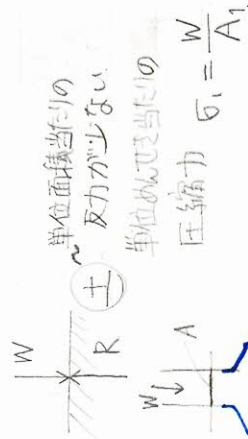 W
R
土
単位面積当たりの
反力が少ない
単位めんせき当たりの
圧縮力
σ₁ = W/A₁
W
A